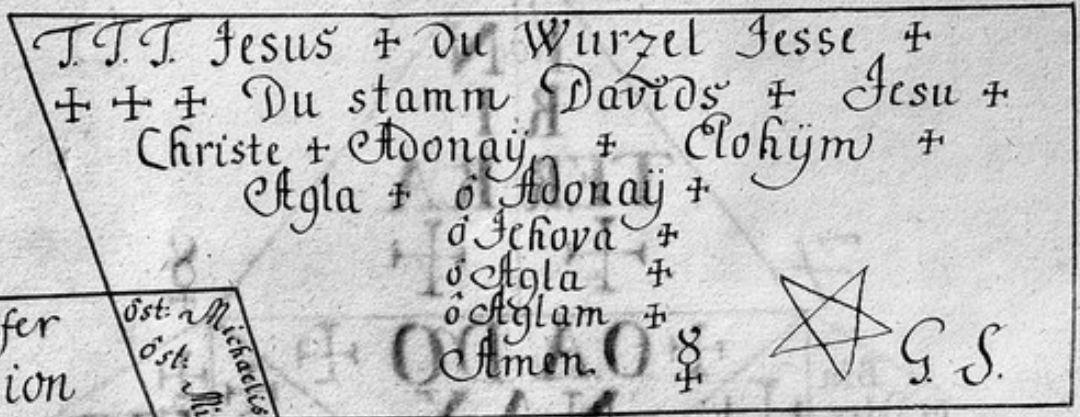 T. T. T. Jesus + Du Wurzel Jesse +
+ + + Du stamm Davids + Jesu +
Christe + Adonaÿ + Elohÿm +
Agla + ô Adonaÿ +
ô Jehova +
ô Agla +
ô Aglam +
Amen.
G. S.
fer
ion
ôst: Michaelis
ôst: Mi